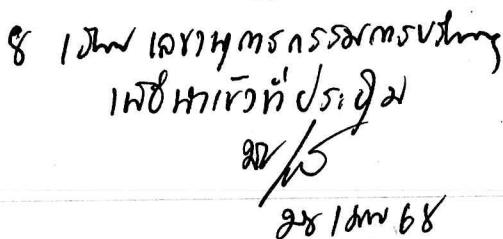 8 เรียน เลขานุการกรรมการบริหาร
เพื่อนำเข้าที่ประชุม
28 เมย 68